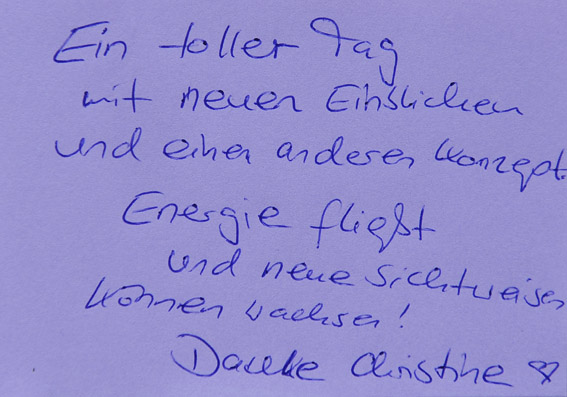 Ein toller Tag
mit neuen Einblicken
und einen anderen Konzept.
Energie fließt
und neue Sichtweisen
können wachsen!
Danke Christine ♡